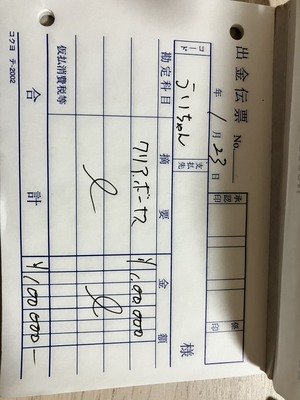 出金伝票 No.
年 1月23日
承認印
係印
コード
支払先
様
勘定科目 摘要 金額
クリア.ボーナス ¥1,00000
仮払消費税等
合計 ¥1,00000-
コクヨ テ-2002